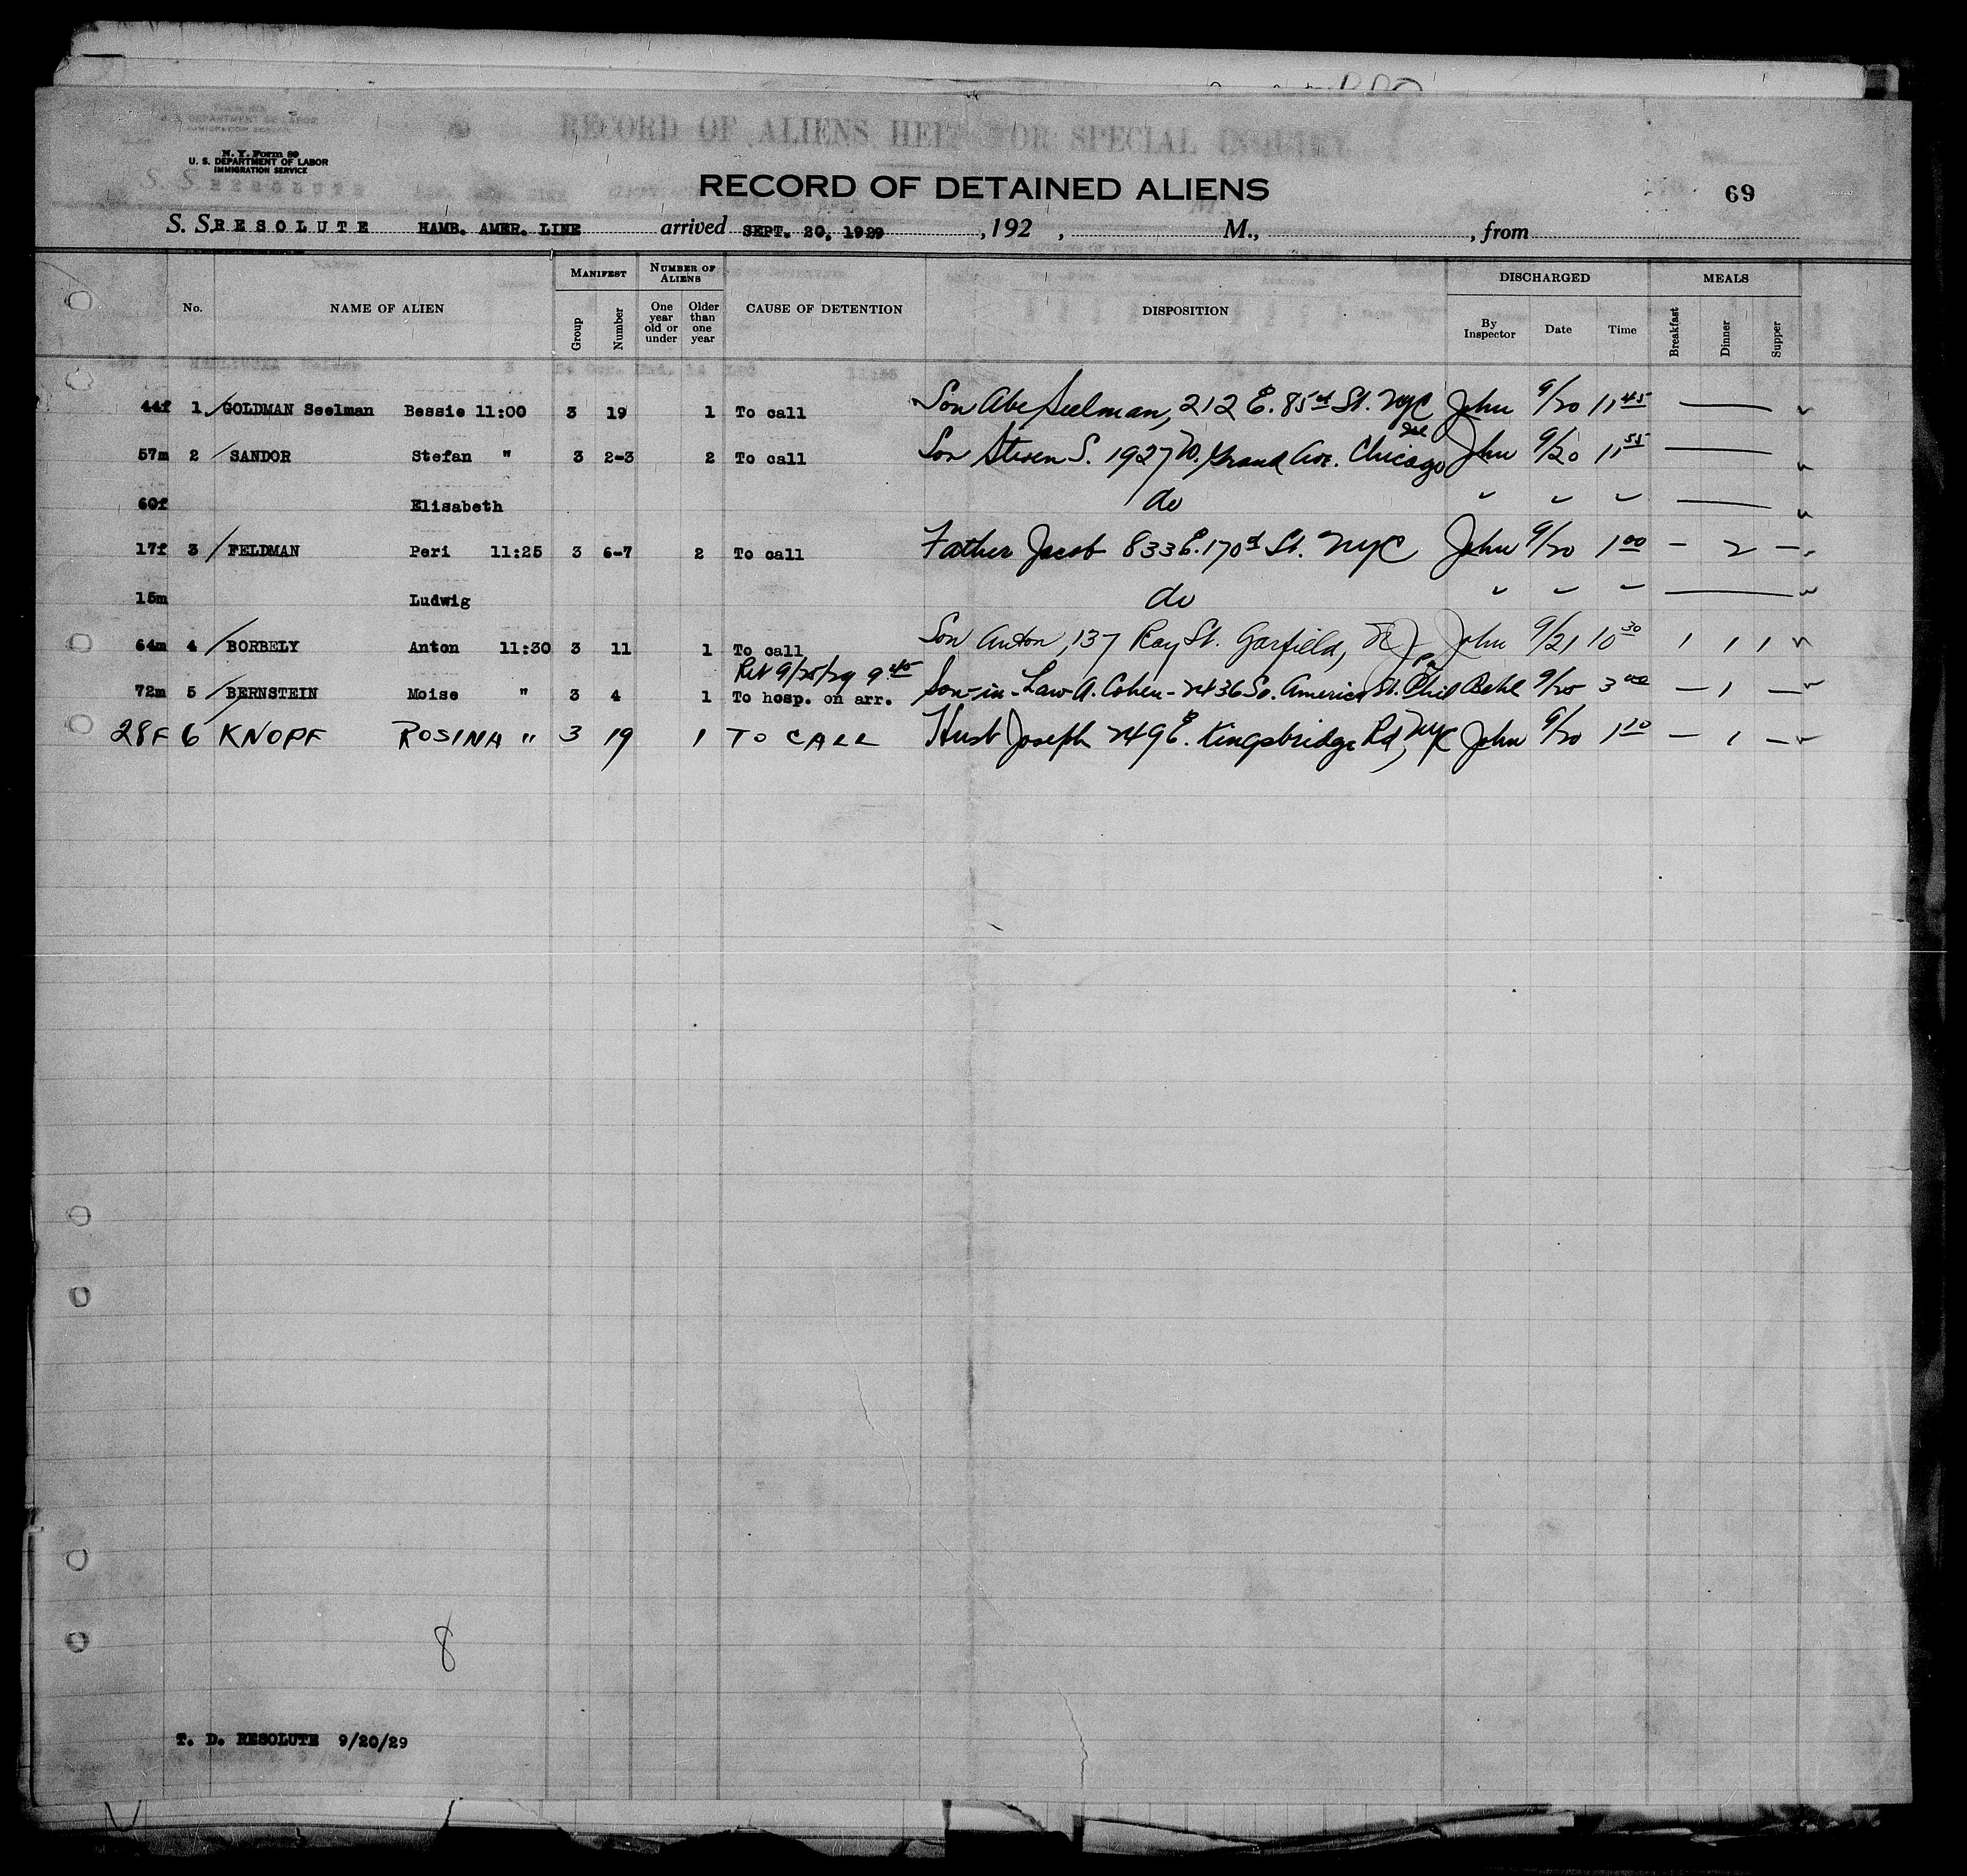 RECORD OF ALIENS HELD FOR SPECIAL INQUIRY
N. Y. Form 89
U. S. DEPARTMENT OF LABOR
IMMIGRATION SERVICE
RECORD OF DETAINED ALIENS
69
S. S. RESOLUTE HAMB. AMER. LINE arrived SEPT. 20, 1929 , 192 , M., , from
MANIFEST NUMBER OF ALIENS DISCHARGED MEALS
No. NAME OF ALIEN Group Number One year old or under Older than one year CAUSE OF DETENTION DISPOSITION By Inspector Date Time Breakfast Dinner Supper
44f 1 GOLDMAN Seelman Bessie 11:00 3 19 1 To call Son Abe Seelman, 212 E. 85th St. NYC John 9/20 11 45 —
57m 2 SANDOR Stefan " 3 2-3 2 To call Son Steven S. 1927 W. Grand Ave. Chicago Ill John 9/20 11 55 —
60f Elisabeth do " " " —
17f 3 FELDMAN Peri 11:25 3 6-7 2 To call Father Jacob 833 E. 170th St. NYC John 9/20 1 00 – 2 –
15m Ludwig do " " " —
64m 4 BORBELY Anton 11:30 3 11 1 To call Son Anton, 137 Ray St. Garfield, NJ John 9/21 10 30 1 1 1
Ret 9/25/29 9 45
72m 5 BERNSTEIN Moise " 3 4 1 To hosp. on arr. Son-in-Law A. Cohen - 2436 So. America St. Phil Pa 3 00 – 1 –
28F 6 KNOPF ROSINA " 3 19 1 TO CALL Husb Joseph 249 E. Kingsbridge Rd, NYC John 9/20 1 10 – 1 –
8
T. D. RESOLUTE 9/20/29